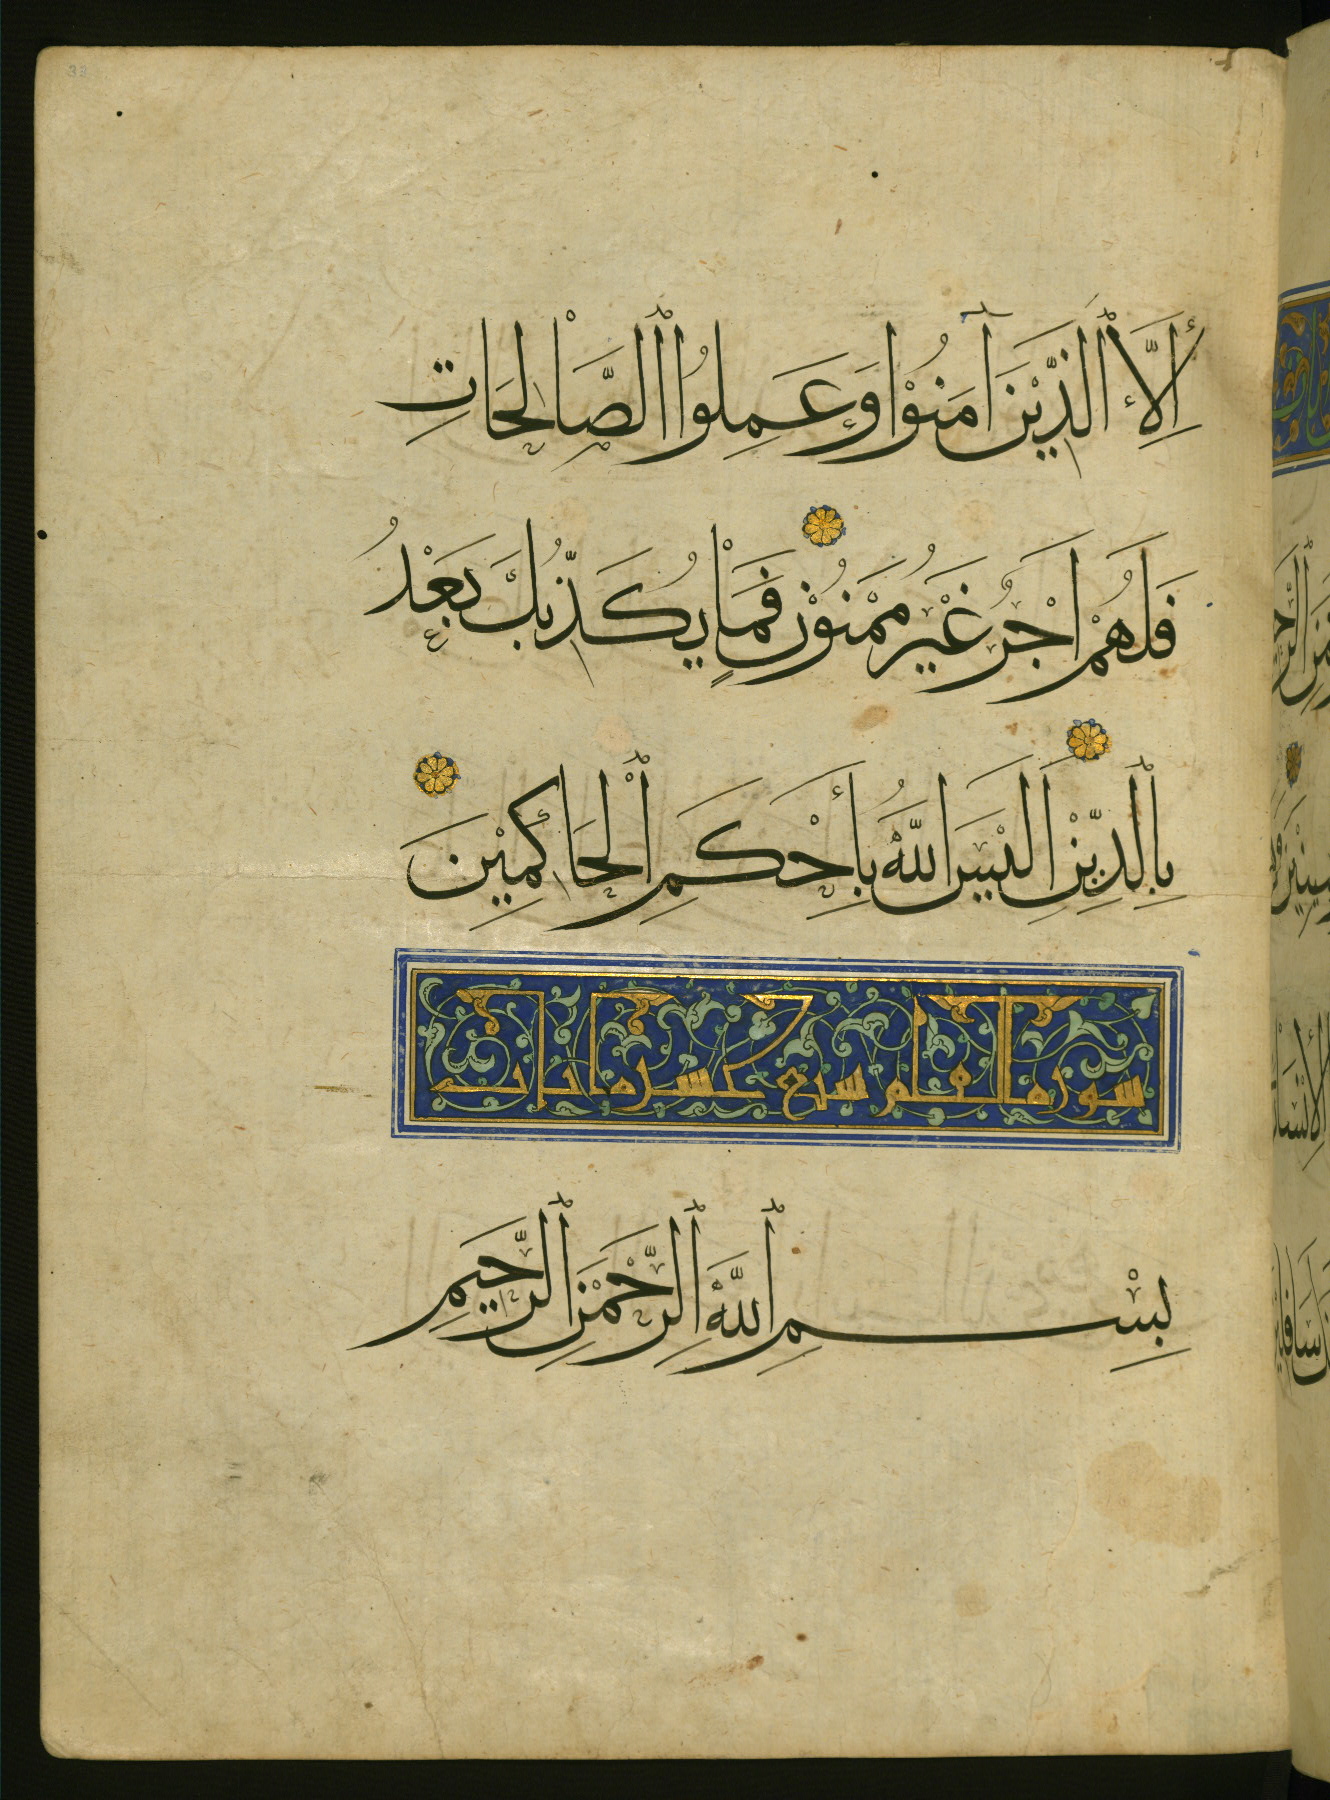 33
إِلَّا ٱلَّذِيْنَ آمَنُوْا وَعَمِلُوا ٱلصَّالِحَاتِ
فَلَهُمْ أَجْرٌ غَيْرُ مَمْنُوْنٍ فَمَا يُكَذِّبُكَ بَعْدُ
بِٱلدِّيْنِ أَلَيْسَ اللَّهُ بِأَحْكَمِ ٱلْحَاكِمِيْنَ
سورة القلم تسع عشرة ايات
بِسْمِ ٱللَّهِ ٱلرَّحْمٰنِ ٱلرَّحِيْمِ